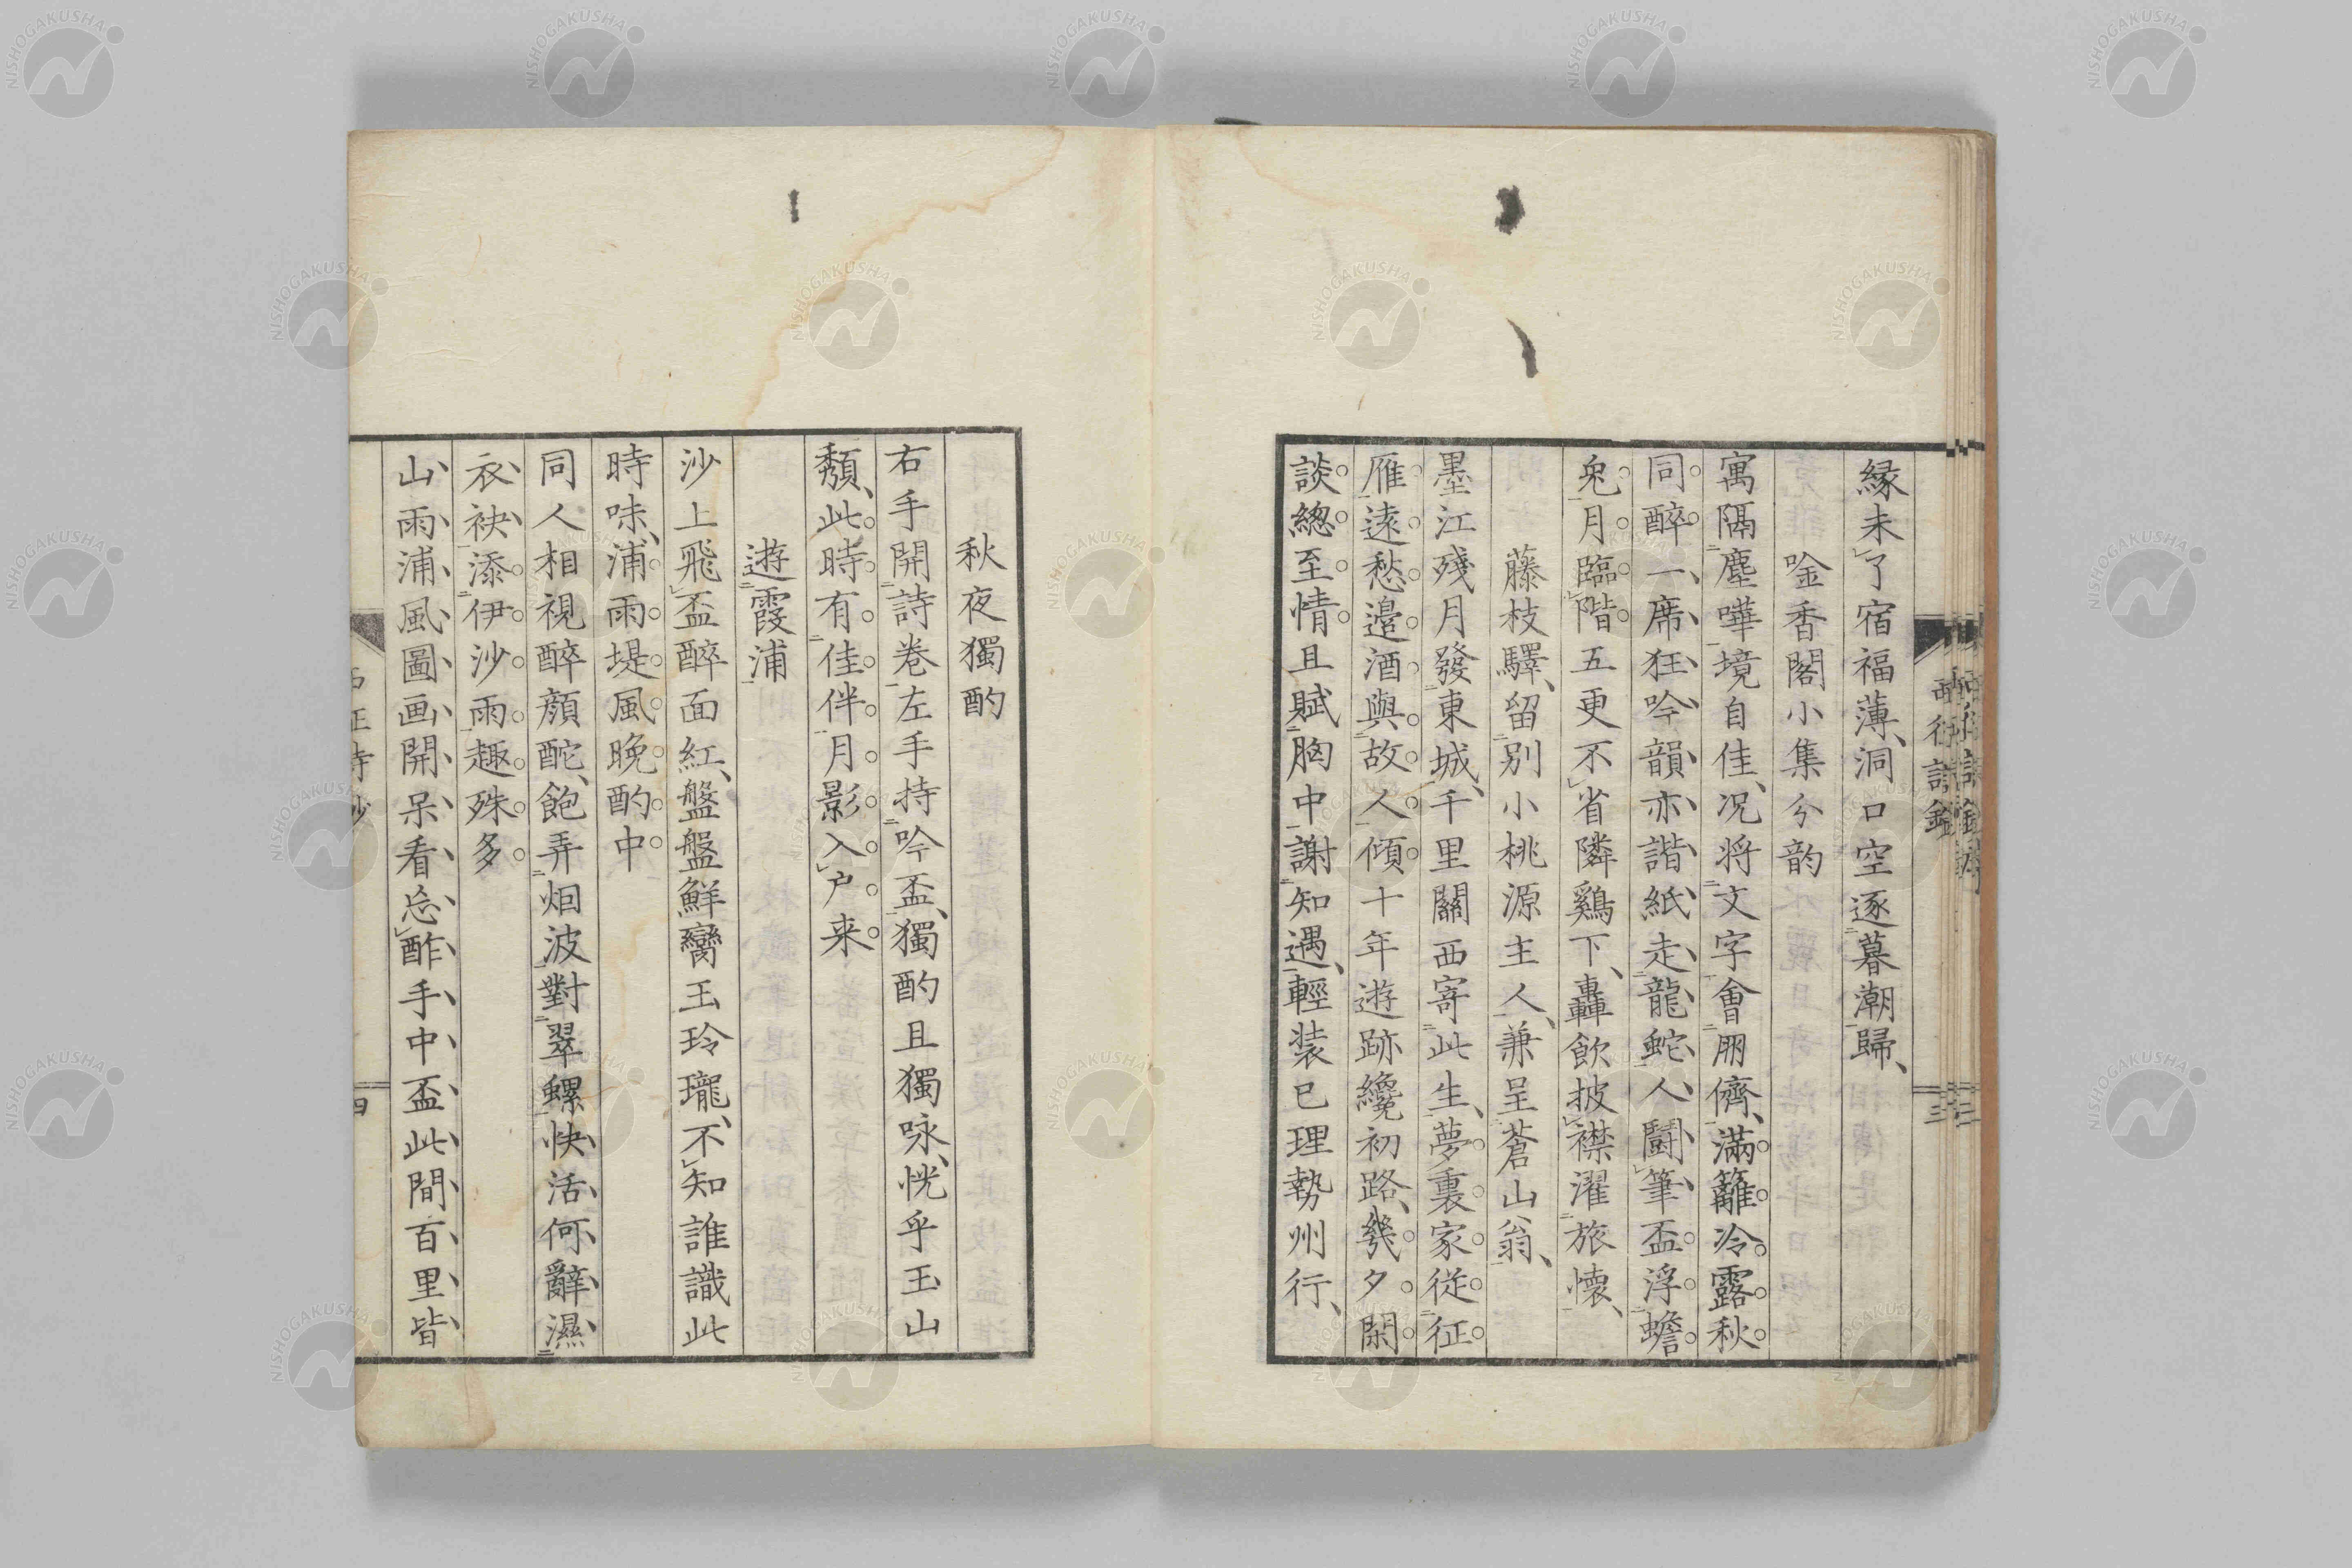 縁未了宿福薄、洞口空逐暮潮歸、
唫香閣小集分韵
寓隔塵嘩境自佳、况将文字會朋儕、滿籬冷露秋
同醉一席狂吟韻亦諧紙走龍蛇人鬪筆盃浮蟾
兎月臨階五更不省隣鷄下、轟飲披襟濯旅懷、
藤枝驛、留別小桃源主人、兼呈蒼山翁、
墨江殘月發東城、千里關西寄此生、夢裏家従征
雁遠愁邉酒與故人傾十年遊跡纔初路、幾夕閑
談總至情且賦胸中謝知遇、輕装已理勢州行、
秋夜獨酌
右手開詩卷左手持吟盃、獨酌且獨咏、恍乎玉山
頽、此時有佳伴月影入户来
遊霞浦
沙上飛盃醉面紅、盤盤鮮臠玉玲瓏、不知誰識此
時味、浦雨堤風晩酌中
同人相視醉顔酡、飽弄烟波對翠螺快活何辭濕
衣袂添伊沙雨趣殊多
山雨浦風圖画開呆看忘酢手中盃此間百里皆